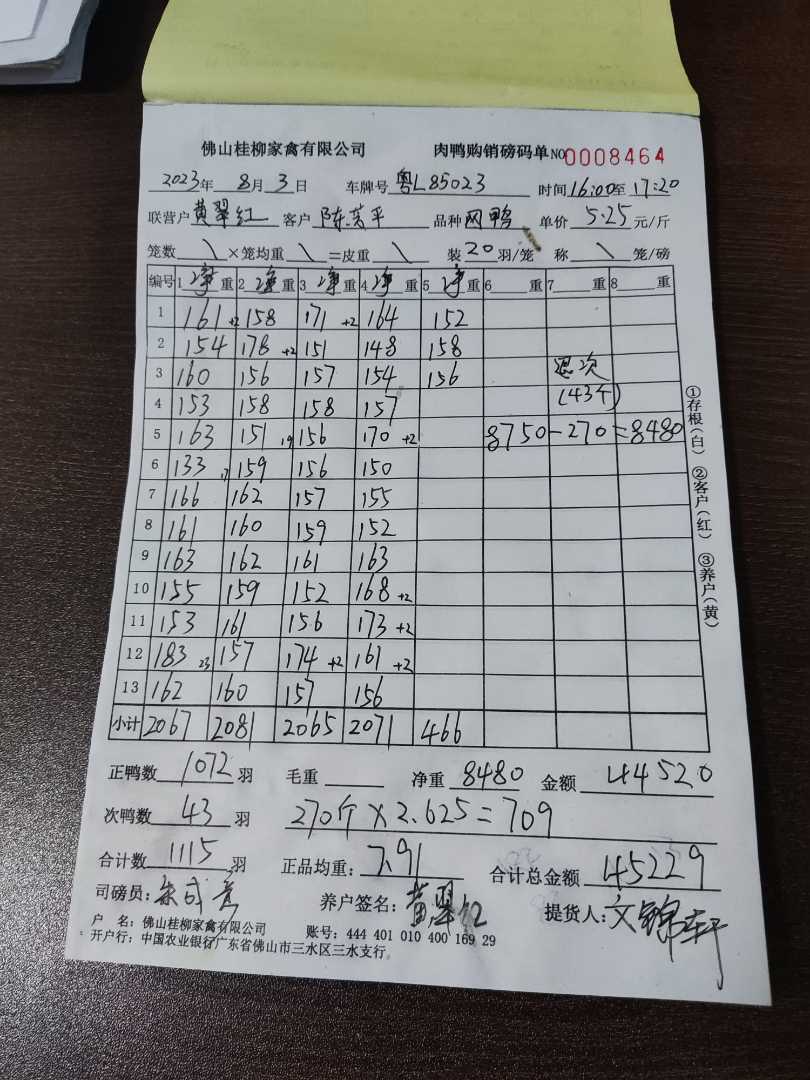 佛山桂柳家禽有限公司 肉鸭购销磅码单 NO 0008464
2023年 8月 3日 车牌号 粤L85023 时间 16:00至17:20
联营户 黄翠红 客户 陈荣平 品种 网鸭 单价 5.25 元/斤
笼数 \ ×笼均重 \ =皮重 \ 装 20 羽/笼 称 \ 笼/磅
编号 1 净 重 2 净 重 3 净 重 4 净 重 5 净 重 6 重 7 重 8 重
1 161 +2 158 171 +2 164 152
2 154 178 +2 151 148 158
3 160 156 157 154 156 退次
4 153 158 158 157 (43个)
5 163 151 19 156 170 +2 8750-270=8480
6 133 17 159 156 150
7 166 162 157 155
8 161 160 159 152
9 163 162 161 163
10 155 159 152 168 +2
11 153 161 156 173 +2
12 183 23 157 174 +2 161 +2
13 162 160 157 156
小计 2067 2081 2065 2071 466
正鸭数 1072 羽 毛重 净重 8480 金额 44520
次鸭数 43 羽 270斤×2.625=709
合计数 1115 羽 正品均重: 7.91 合计总金额 45229
司磅员: 养户签名: 黄翠红 提货人: 文锦轩
户 名: 佛山桂柳家禽有限公司 账号: 444 401 010 400 169 29
开户行: 中国农业银行广东省佛山市三水区三水支行
①存根(白) ②客户(红) ③养户(黄)